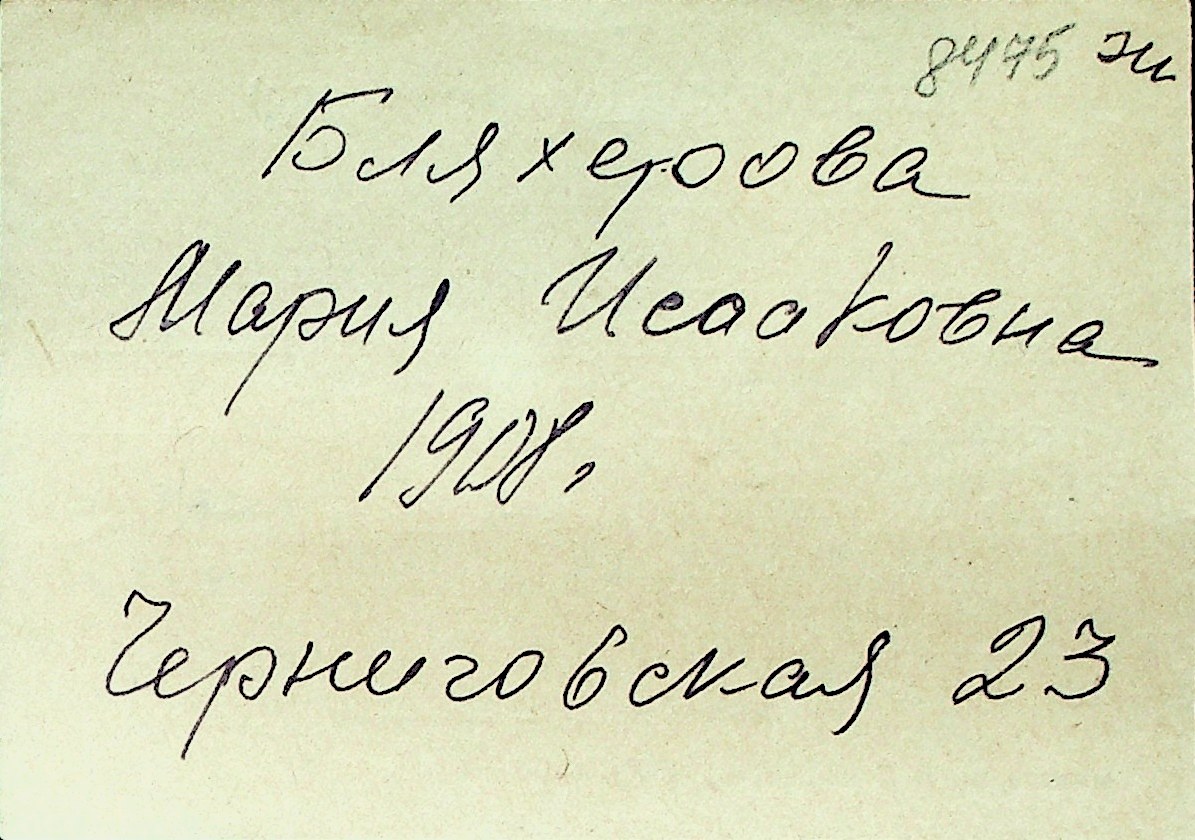 8475 ж
Бляхерова
Мария Исааковна
1908.
Черниговская 23